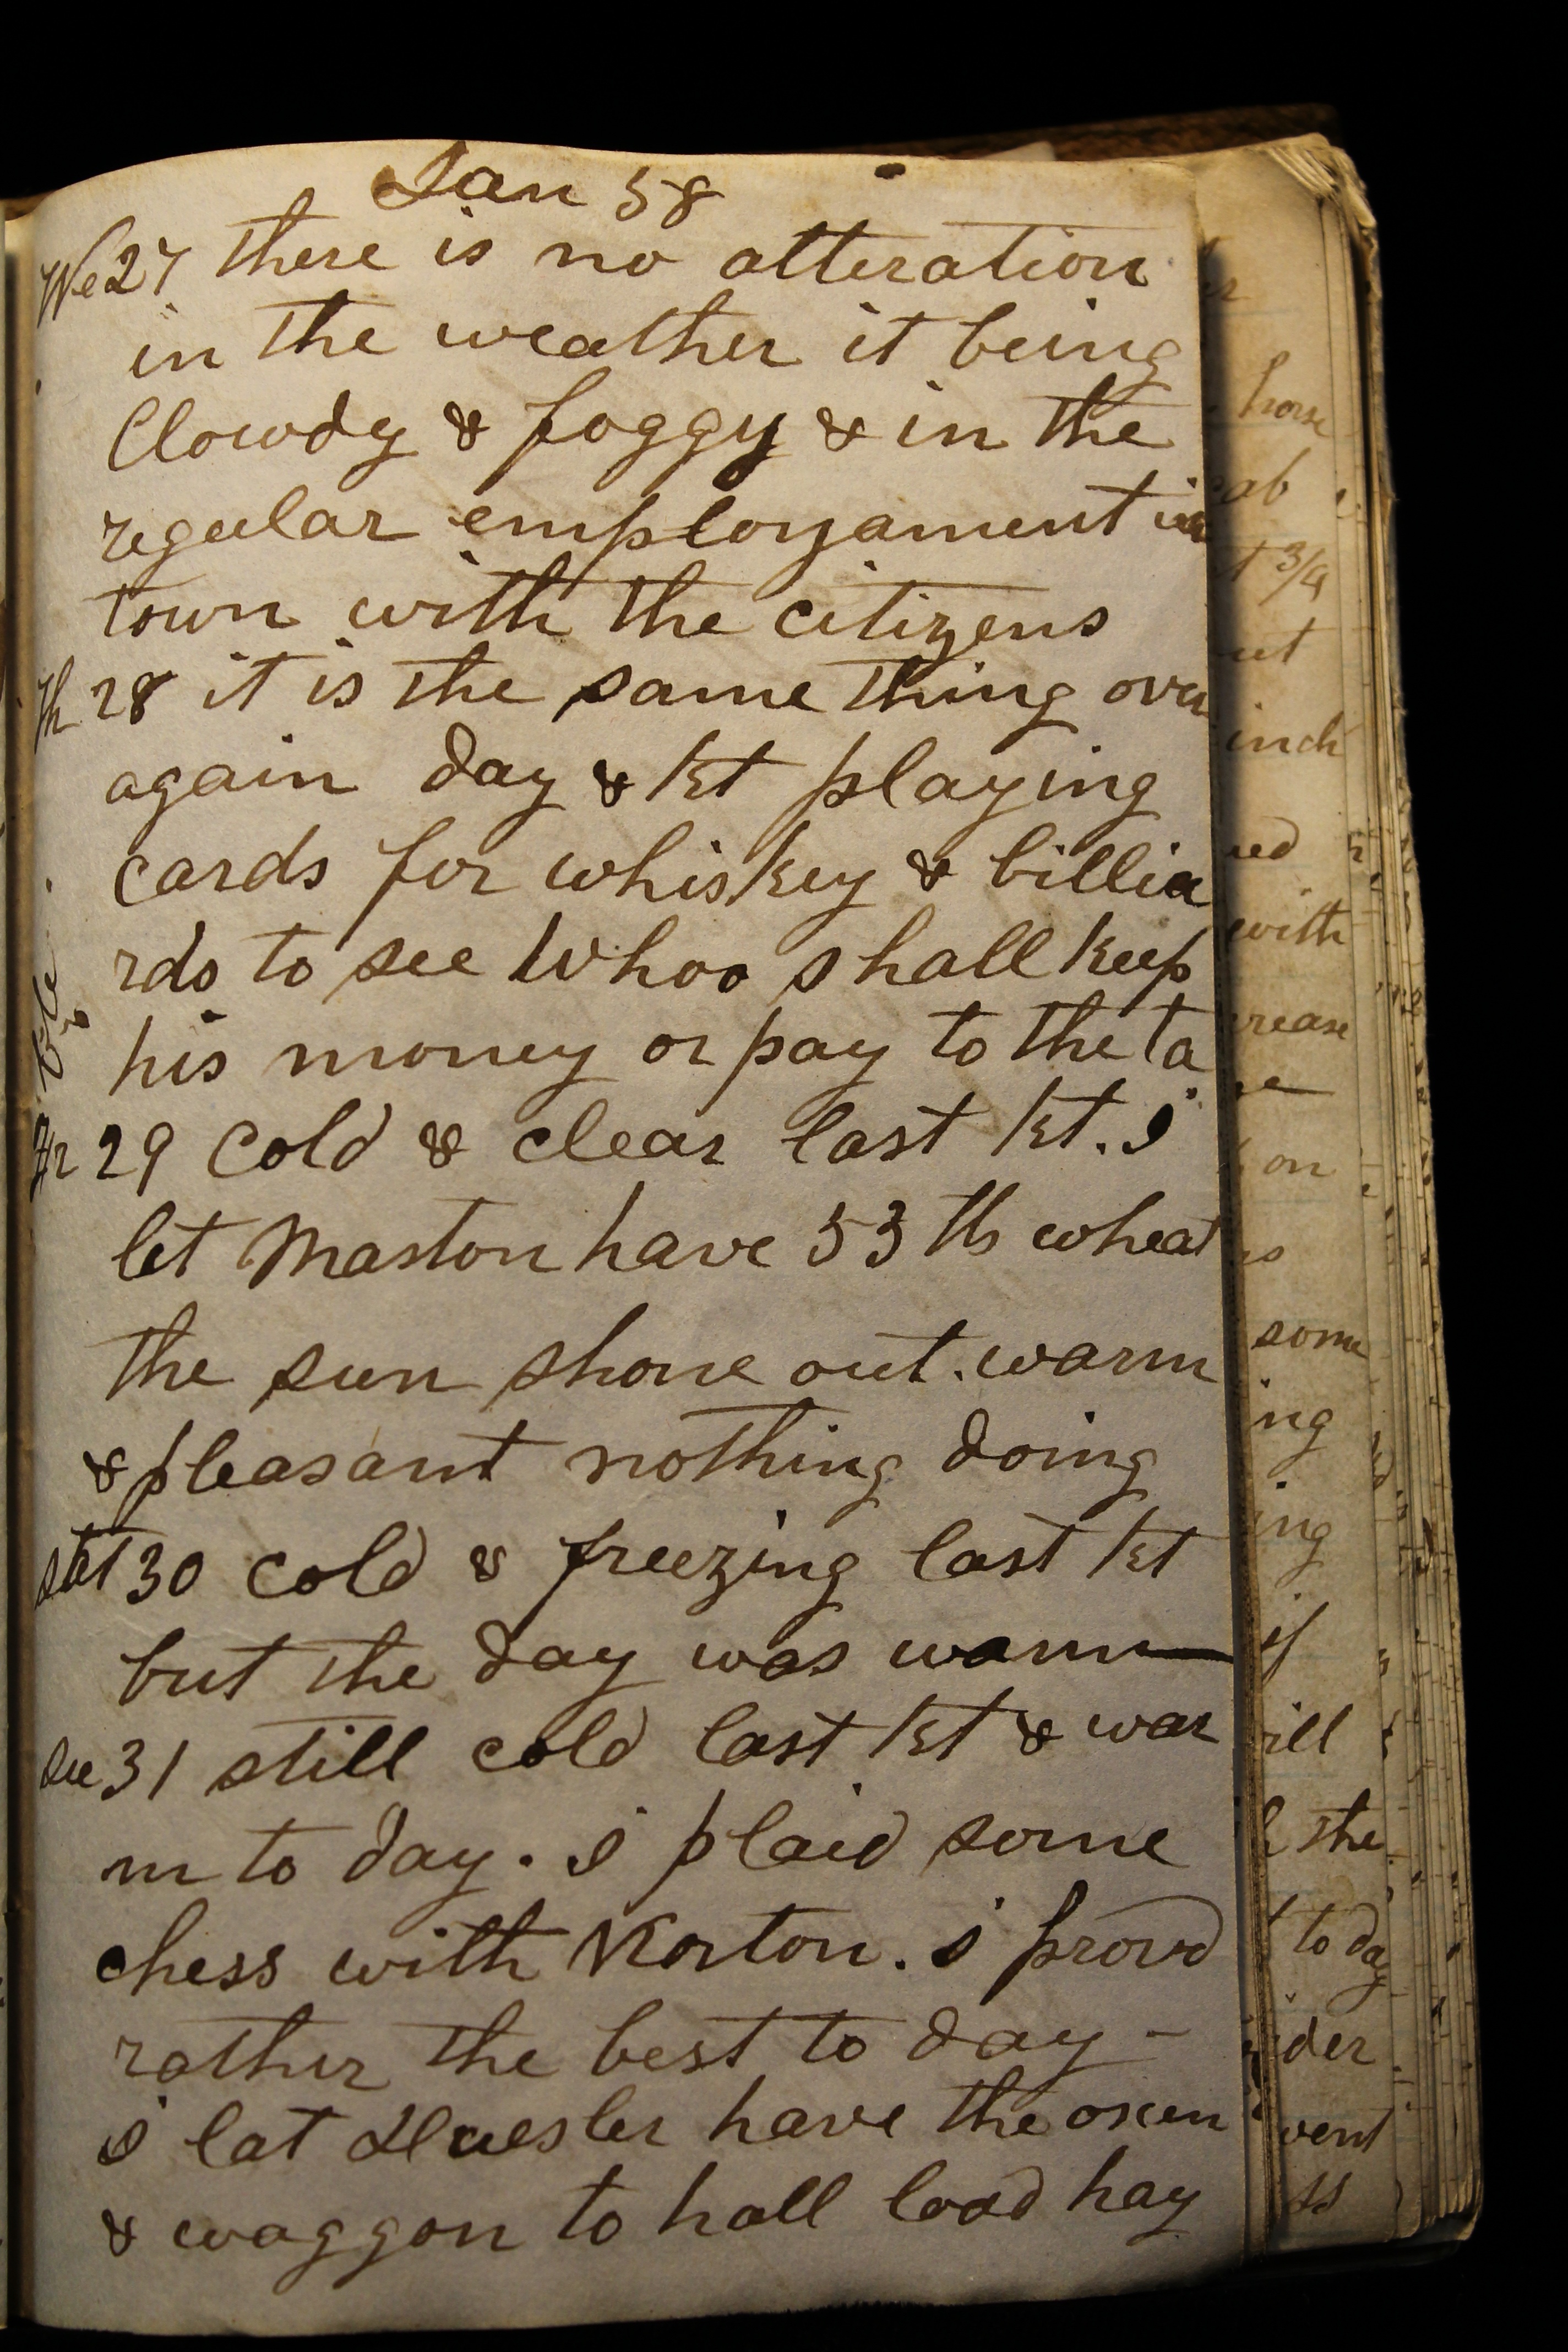 Jan 58
We 27 there is no alteration
in the weather it being
Clowdy & foggy & in the
regular employament in
town with the citizens
Th 28 it is the same thing over
again day & kt playing
cards for whiskey & billia
rds to see Whoo shall keep
his money or pay to the ta
ble
Fr 29 cold & clear last kt. I
let Maston have 53 lb wheat
the sun shone out. warm
& pleasant nothing doing
Sat 30 cold & freezing last kt
but the day was warm
Su 31 still cold last kt & war
m to day. I plaid some
chess with Norton. I provd
rather the best to day -
I lat have the oxen
& waggon to hall load hay
horse
3/4
inch
with
on
some
ing
ing
if
she
to day